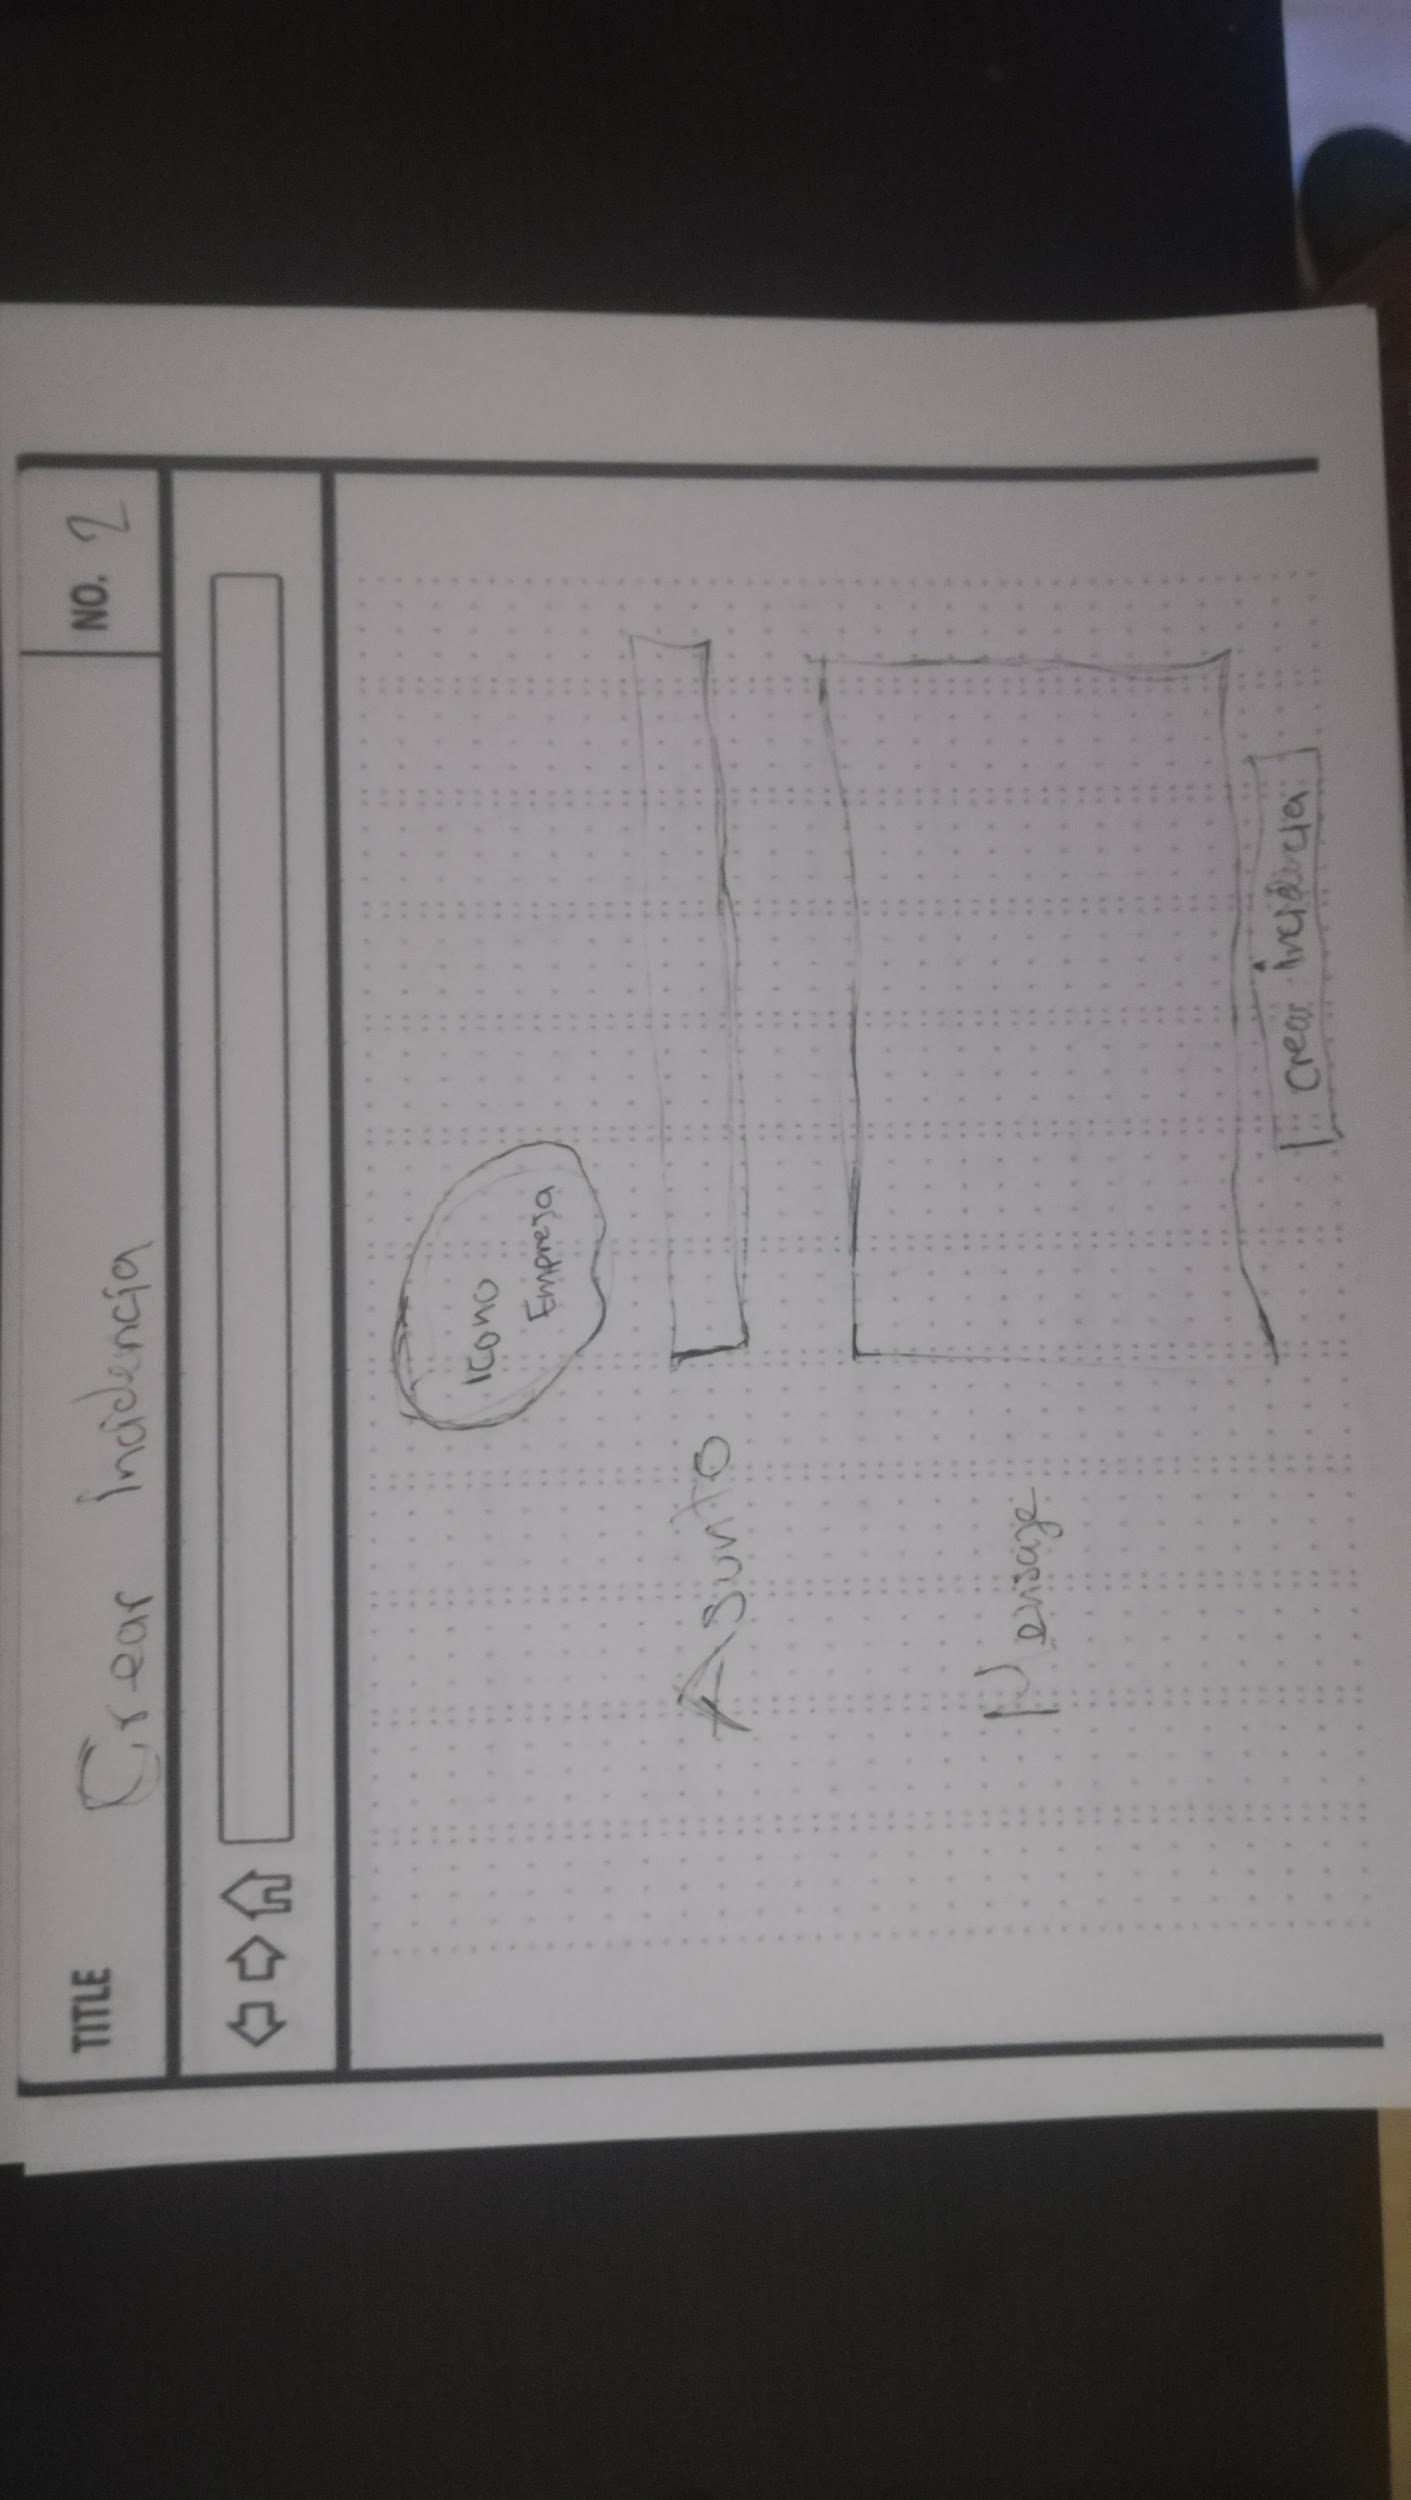 TITLE Crear Incidencia
NO. 2
Icono
Empresa
Asunto
Mensaje
Crear incidencia